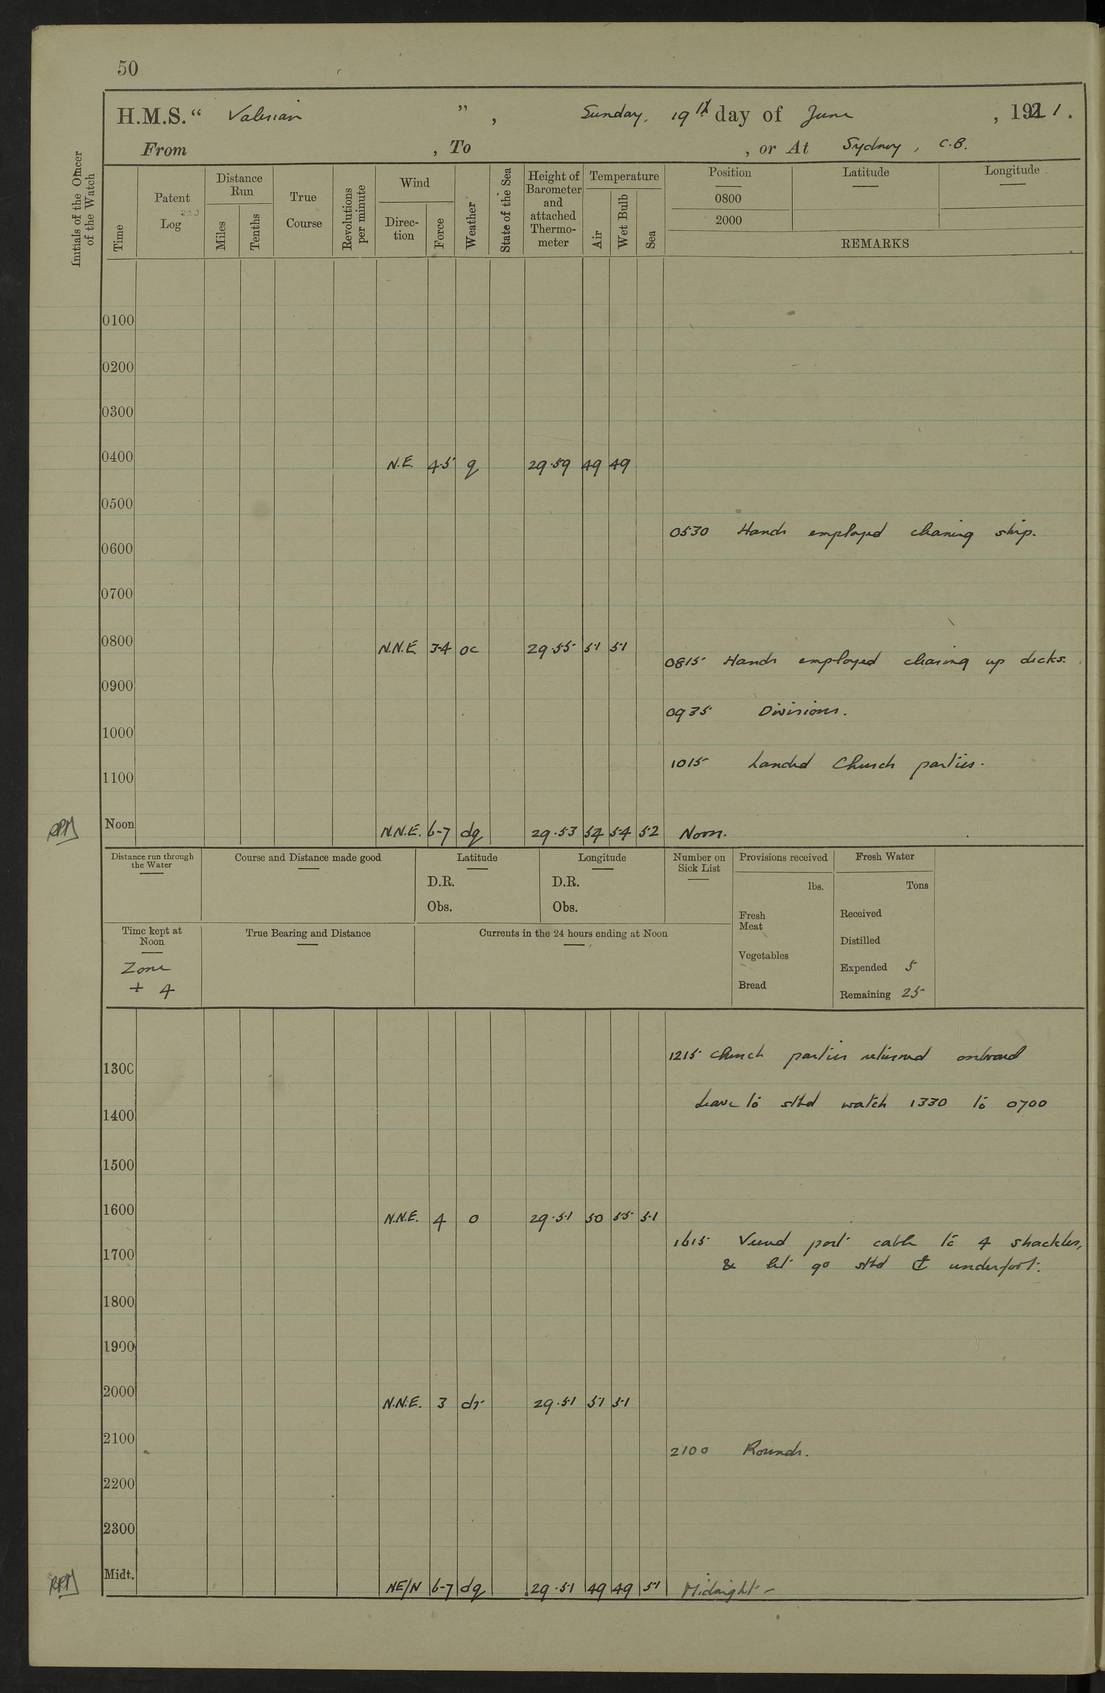 50
H.M.S. " Valerian " , Sunday, 19th day of June , 1921.
From , To , or At Sydney, C.B.
Initials of the Officer of the Watch
Time
Patent Log
Distance Run
Miles
Tenths
True Course
Revolutions per minute
Wind
Direction
Force
Weather
State of the Sea
Height of Barometer and attached Thermometer
Temperature
Air
Wet Bulb
Sea
Position Latitude Longitude
0800
2000
REMARKS
0100
0200
0300
0400 N.E. 4-5 g 29.59 49 49
0500
0530 Hands employed cleaning ship.
0600
0700
0800 N.N.E. 3-4 oc 29.55 51 51
0815 Hands employed clearing up decks.
0900
0935 Divisions.
1000
1015 Landed Church parties.
1100
RPM Noon N.N.E. 6-7 dg 29.53 54 54 52 Noon.
Distance run through the Water
Course and Distance made good
Latitude
D.R.
Obs.
Longitude
D.R.
Obs.
Number on Sick List
Provisions received
lbs.
Fresh Meat
Vegetables
Bread
Fresh Water
Tons
Received
Distilled
Expended 5
Remaining 25
Time kept at Noon
Zone
+ 4
True Bearing and Distance
Currents in the 24 hours ending at Noon
1215 Church parties returned onboard
1300
Leave to stbd watch 1330 to 0700
1400
1500
1600 N.N.E. 4 o 29.51 50 55 51
1615 Veered port cable to 4 shackles,
1700
& let go stbd ⚓ underfoot.
1800
1900
2000 N.N.E. 3 dr 29.51 51 51
2100 2100 Rounds.
2200
2300
RPM Midt. NE/N 6-7 dg 29.51 49 49 51 Midnight -